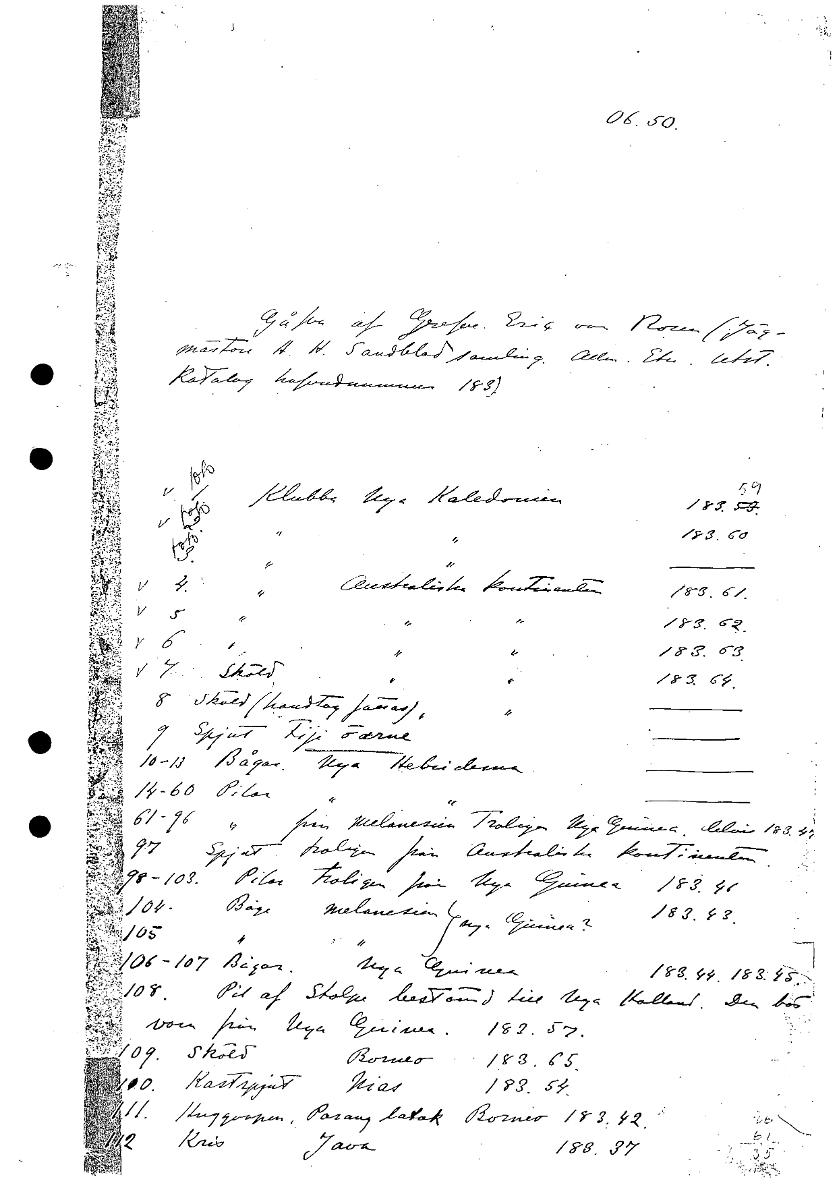 06.50.
Gåfva af Grefve Eric von Rosen (Jäg-
mästare H. H. Sandblad samling. Allm. Etn. Utst.
Katalog hufvudnummer 183)
v foto Klubba Nya Kaledonien 183.59
v foto " " 183.60
foto " "
v 4. " Australiska kontinenten 183.61.
v 5 " " " 183.62.
v 6 " " " 183.63
v 7. Sköld " " 183.64.
8 Sköld (handtag finnas), "
9 Spjut Fiji öarne
10-13 Bågar. Nya Hebriderna
14-60 Pilar " "
61-96 " från Melanesien Troligen Nya Guinea. 183.47
97 Spjut troligen från Australiska kontinenten.
98-103. Pilar troligen från Nya Guinea 183.46
104. Båge Melanesien } Nya Guinea? 183.43.
105 " "
106-107 Bågar. Nya Guinea 183.44. 183.45.
108. Pil af Stolpe bestämd till Nya Holland. Den bör
vara från Nya Guinea. 183.57.
109. Sköld Borneo 183.65.
100. Kastspjut Nias 183.54.
111. Huggvapen, Parang latok Borneo 183.42.
112 Kris Java 183.37
26
61
35